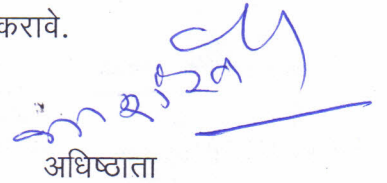 करावे.
अधिष्ठाता